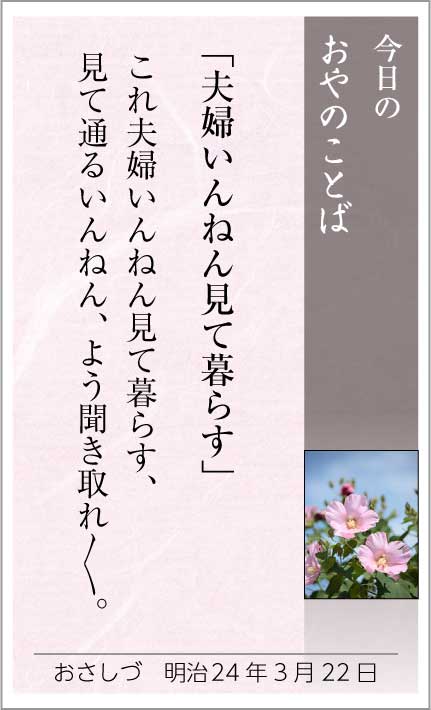 今日の
おやのことば
「夫婦いんねん見て暮らす」
これ夫婦いんねん見て暮らす、
見て通るいんねん、よう聞き取れ〱。
おさしづ　明治24年3月22日